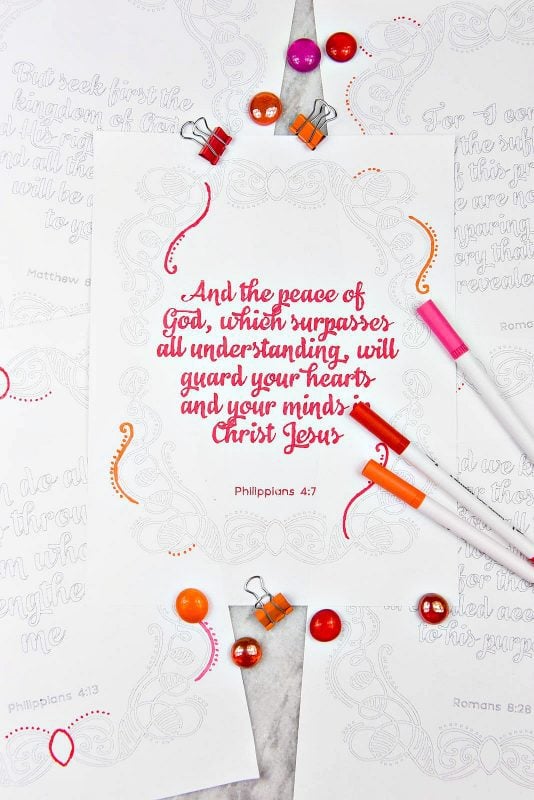 But seek first the
kingdom of God
and
and all the
will be a
to yo
Matthew 6
For I con
the suff
of this pr
are no
mparing
ory that
revealed
Roma
And the peace of
God, which surpasses
all understanding, will
guard your hearts
and your minds in
Christ Jesus
Philippians 4:7
n do all
throu
m who
engthe
me
Philippians 4:13
nd we k
for tho
lled acco
to his purp
Romans 8:28